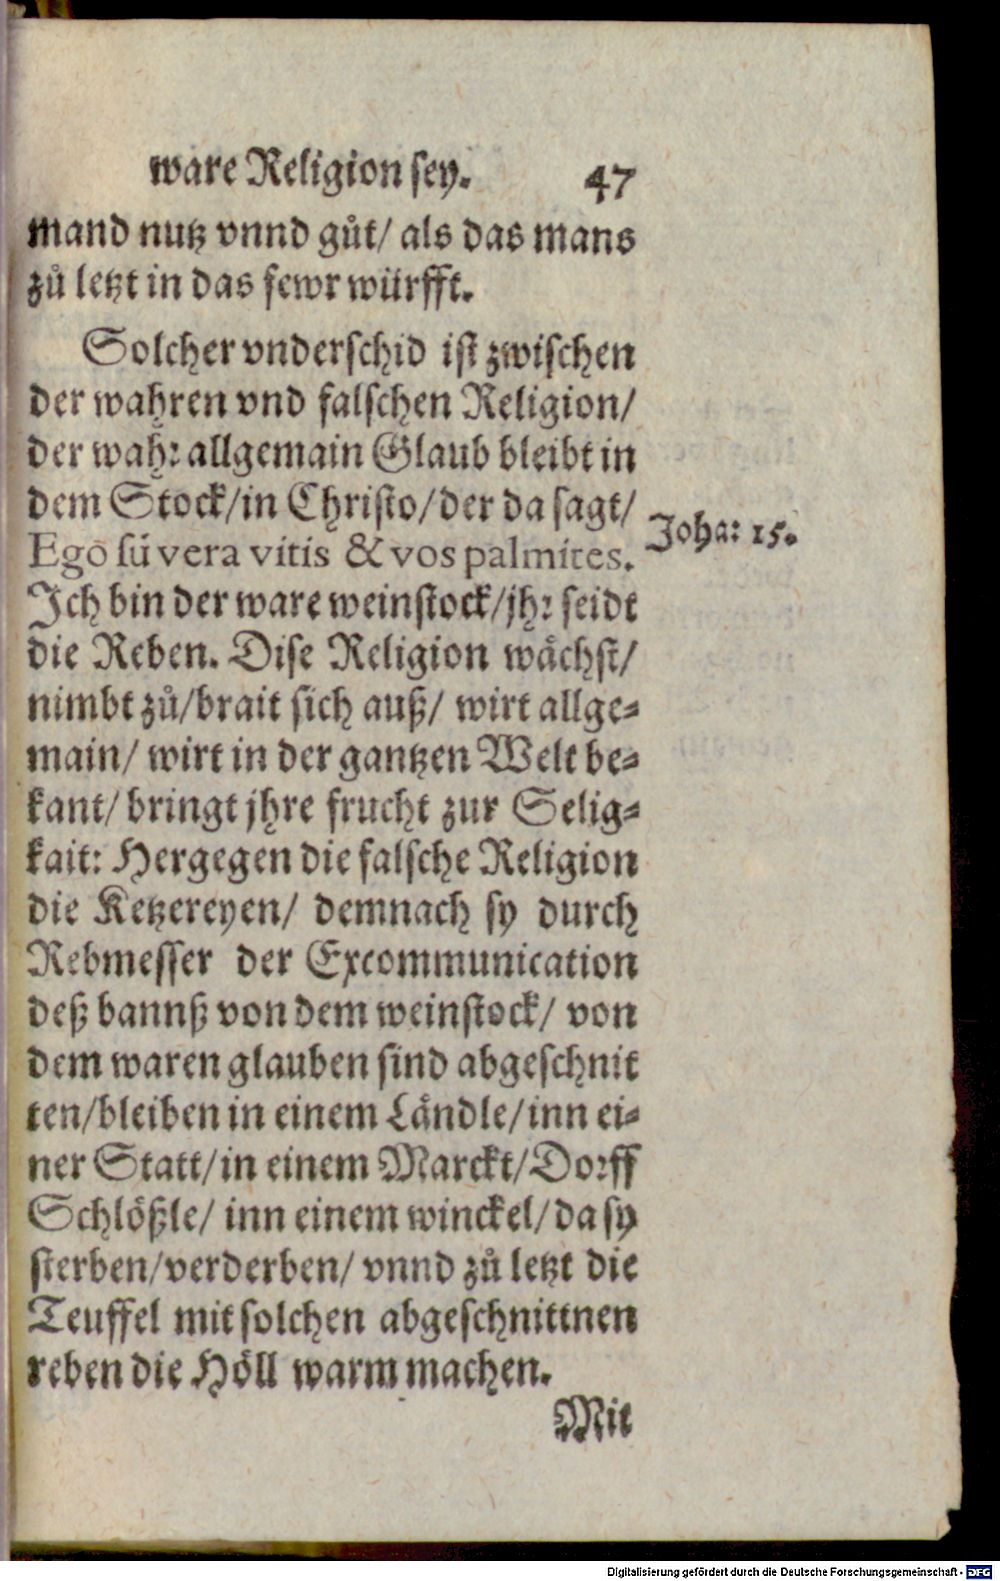 ware Religion sey. 47
mand nutz vnnd gůt/ als das mans
zů letzt in das fewr würfft.
Solcher vnderschid ist zwischen
der wahren vnd falschen Religion/
der wahr allgemain Glaub bleibt in
dem Stock/in Christo/der da sagt/
Joha: 15.
Ego sū vera vitis & vos palmites.
Ich bin der ware weinstock/jhr seidt
die Reben. Dise Religion wächst/
nimbt zů/brait sich auß/ wirt allge-
main/ wirt in der gantzen Welt be-
kant/ bringt jhre frucht zur Selig-
kait: Hergegen die falsche Religion
die Ketzereyen/ demnach sy durch
Rebmesser der Excommunication
deß bannß von dem weinstock/ von
dem waren glauben sind abgeschnit
ten/bleiben in einem Ländle/inn ei-
ner Statt/in einem Marckt/Dorff
Schlößle/ inn einem winckel/da sy
sterben/verderben/ vnnd zů letzt die
Teuffel mit solchen abgeschnittnen
reben die Höll warm machen.
Mit
Digitalisierung gefördert durch die Deutsche Forschungsgemeinschaft - DFG